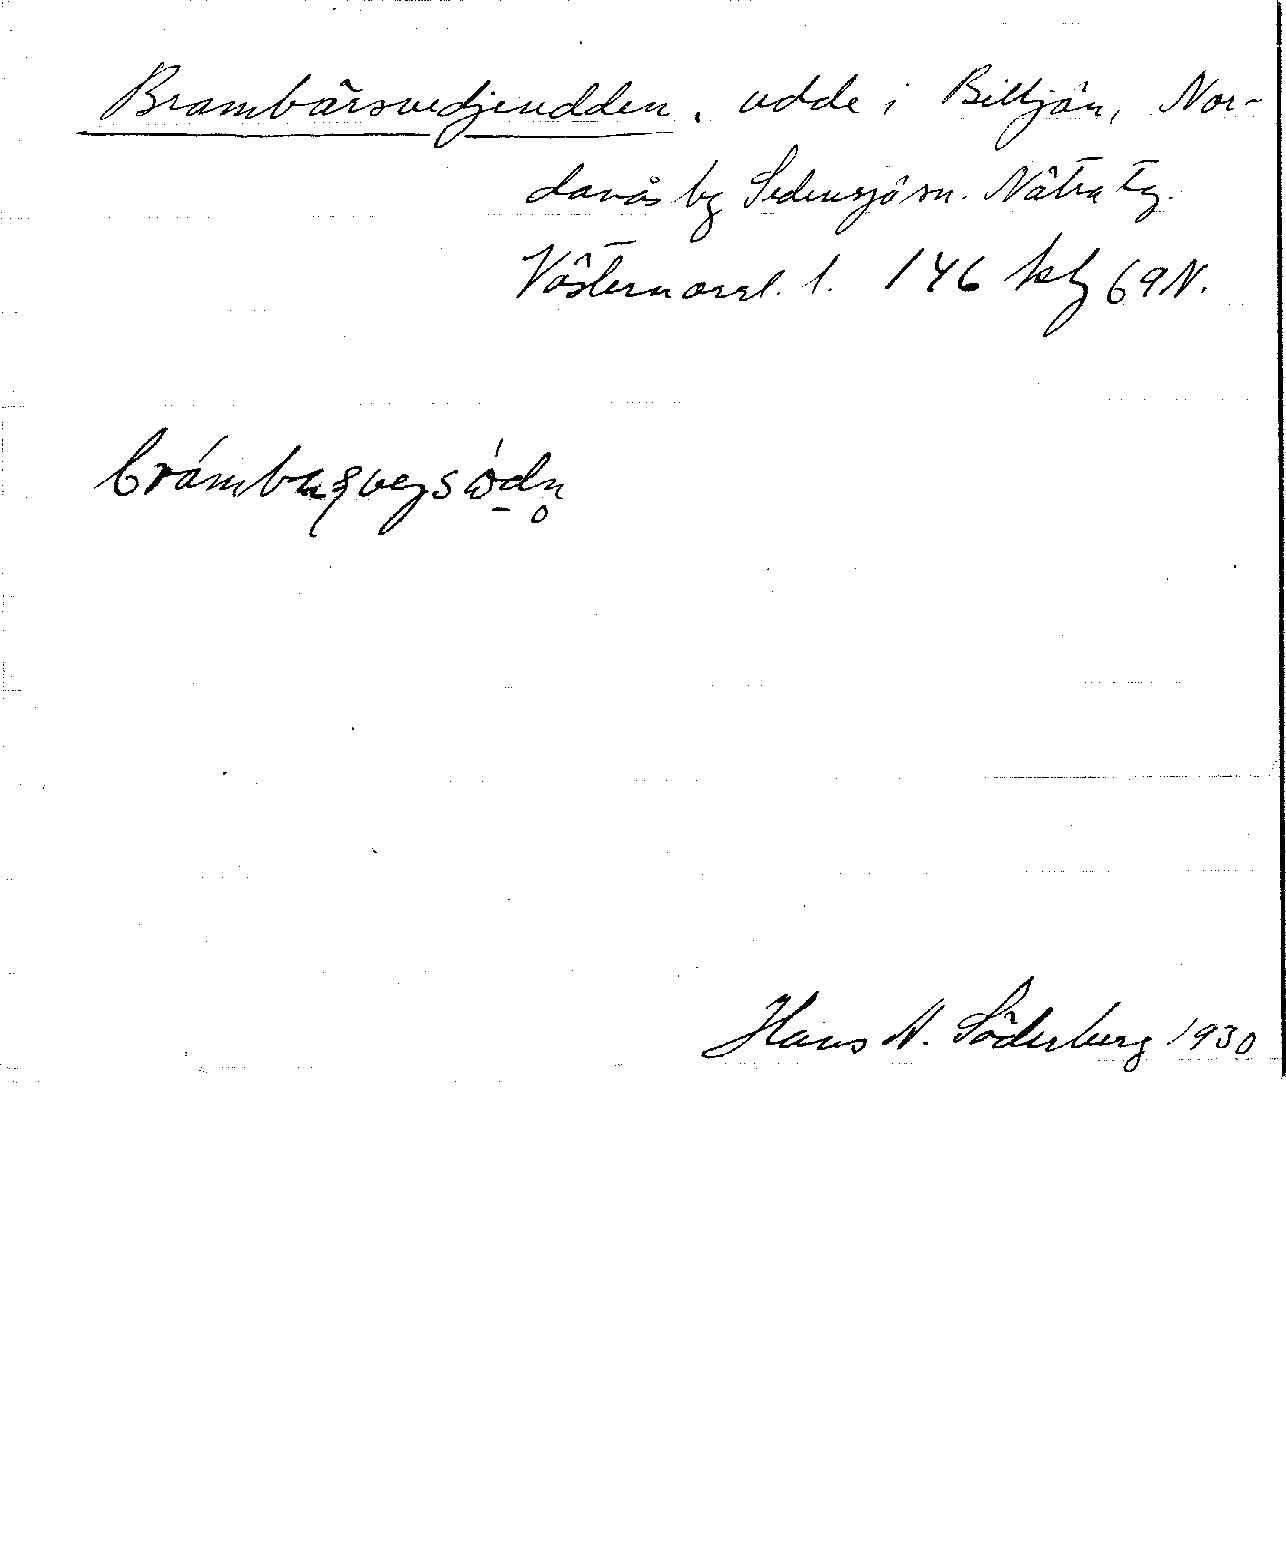 Brambärsvedjeudden, udde i Billsjön, Nor-
danås by Sidensjö sn. Nätra tg.
Västernorrl. l. 146 kbl 69 N.
Hans A. Söderberg 1930